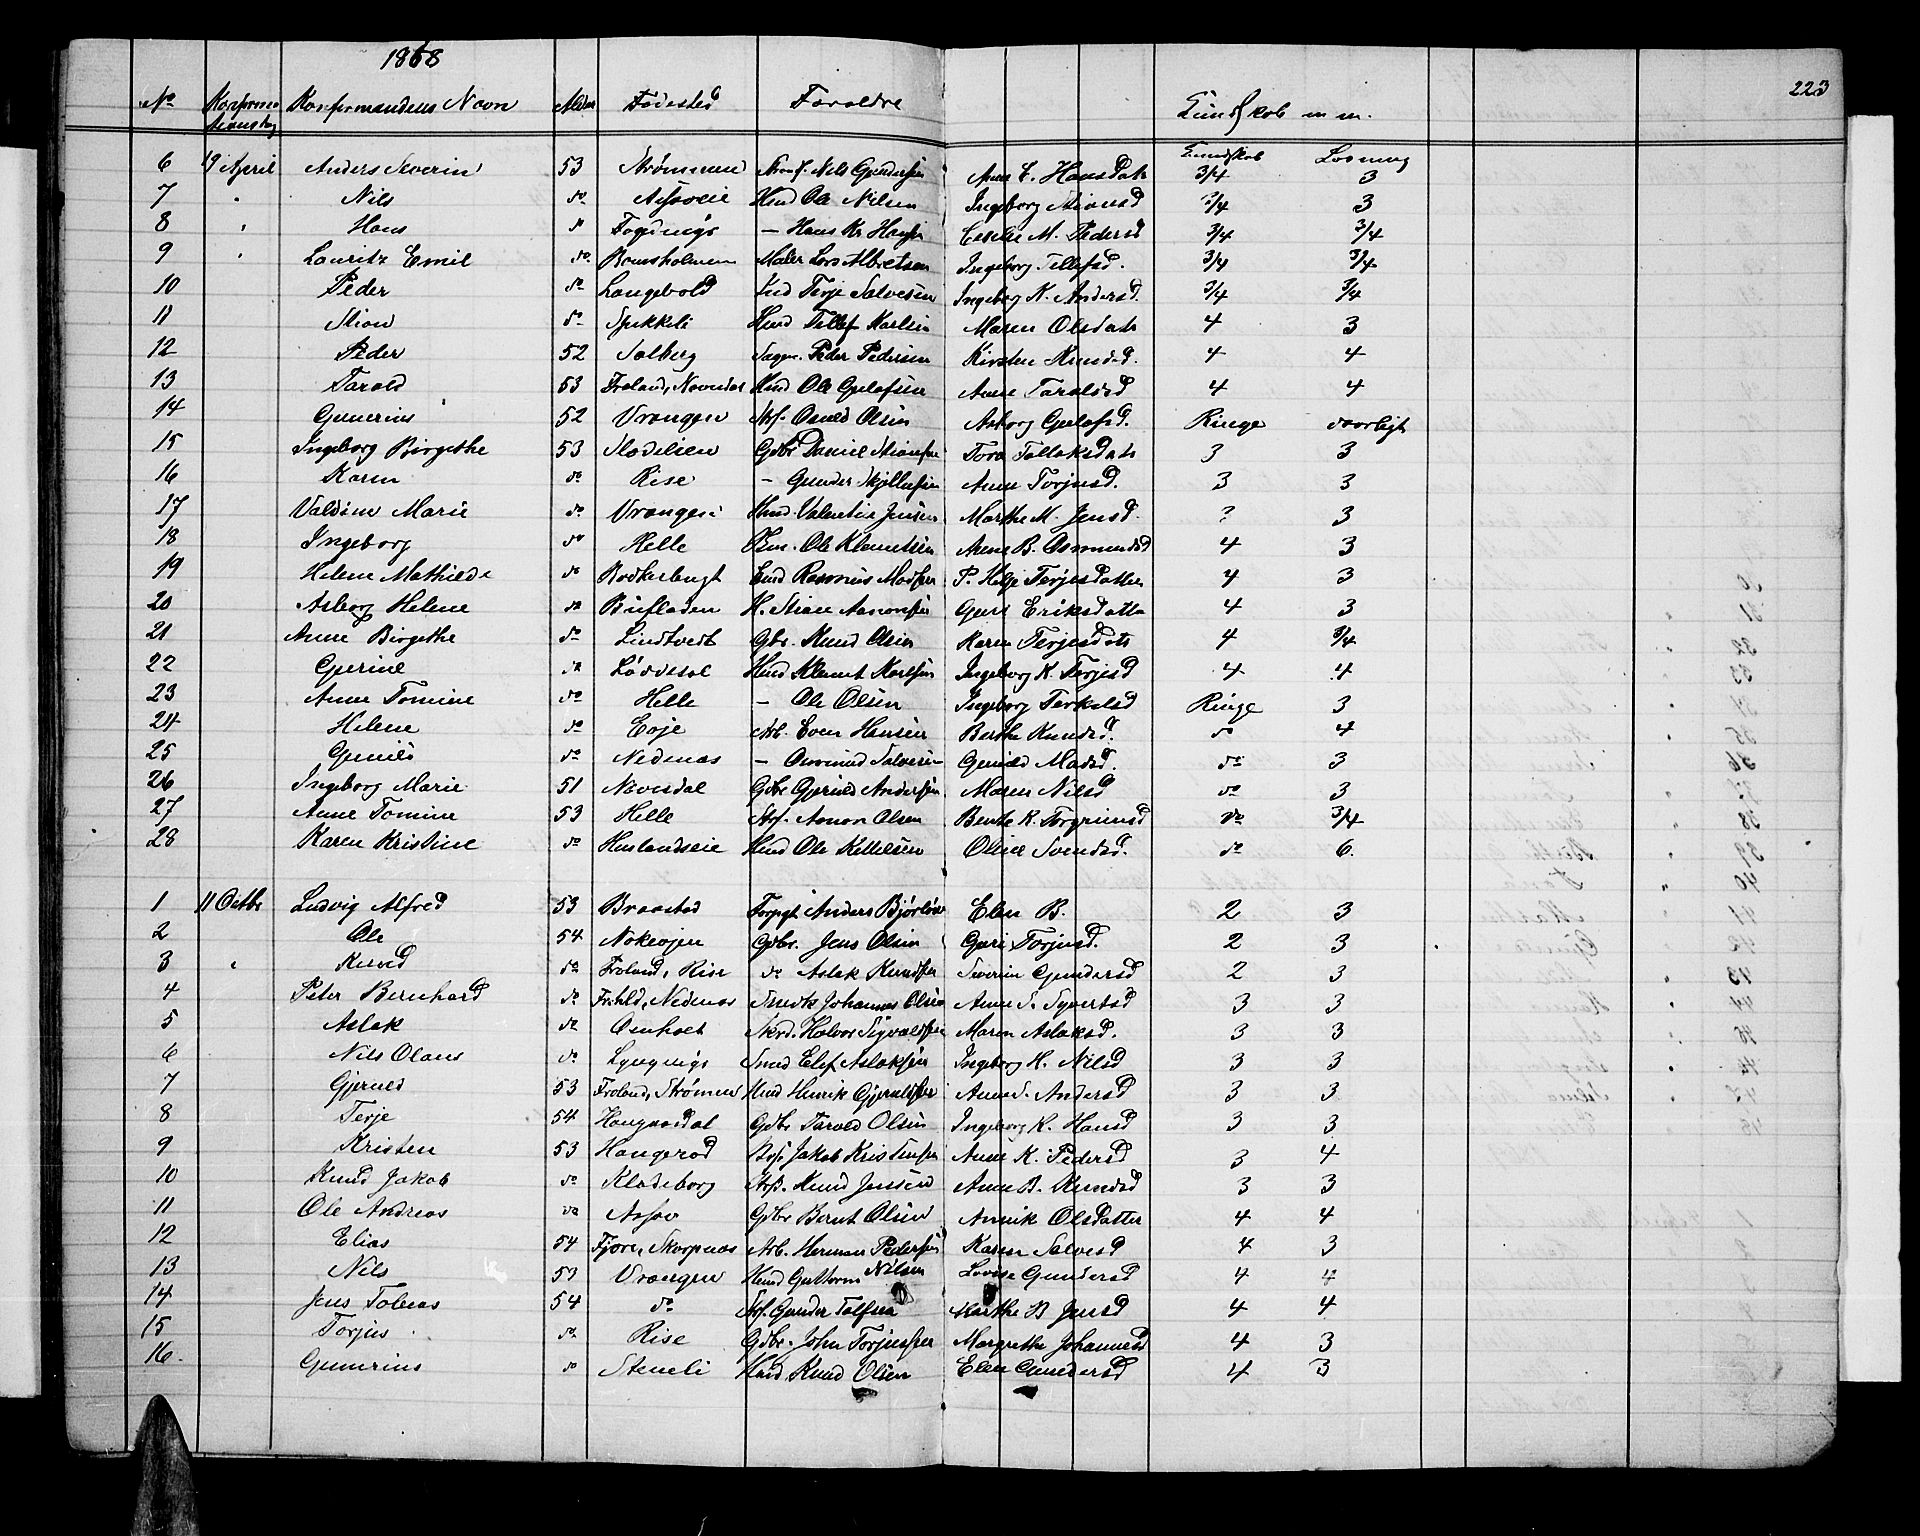 1868
223
No Konfirmationsdag Konfirmandens Navn Alder Fødested Forældre Kundskab m. m.
Kundskab Læsning
6 19 April Anders Severin 53 Strømmen Nils Gundersen Anne E. Hansdatr 3/4 3
7 " Nils do Ole Nilsen Ingeborg Stiansd 3/4 3
8 " Hans do Fogdnigs — Hans Kr Hansen Cecilie M. Pedersd 3/4 3/4
9 " Lauritz Emil do Bomsholmen Maler Lars Albretsen Ingeborg Tellefsd. 3/4 3/4
10 Peder do Langevold Ind Terje Salvesen Ingeborg K. Andersd. 3/4 3/4
11 Stian do Spikkeli Hmd Tellef Karlsen Maren Olsdatr 4 3
12 Peder 52 Solberg Peder Pedersen Kirsten Knudsd. 4 4
13 Tarald 53 Froland, Navnedal Hmd Ole Gulofsen Anne Taraldsd 4 4
14 Gunerius 52 Vrangen Olsen Asborg Gulofsd. Ringe daarligt
15 Ingeborg Birgithe 53 Gdbr Daniel Stiansen Tora Tallaksdatr 3 3
16 Karen do Rise — Gunder Anne Torjusd. 3 3
17 Valdine Marie do Vrangen Hmd. Valentin Jensen Marthe M. Jensd. ? 3
18 Ingeborg do Helle Ole Klemetsen Anne B. Osmundsd 4 3
19 Helene Mathilde do Rasmus Madsen P. Helje Terjesdatter 4 3
20 Asborg Helene do Bufladen H. Stian Aanonsen Guri Eriksdatter 4 3
21 Anne Birgithe do Lindtvedt Gbr. Knud Olsen Karen Terjesdatr 4 3/4
22 Gurine do Løddesøl Hmd Klemet Karlsen Ingeborg K. Terjesd 4 4
23 Anne Tomine do Helle — Ole Olsen Ingeborg Terkelsd Ringe 3
24 Helene do Eoje Arb. Even Hansen Berthe Knudsd. do 4
25 do Nedenæs — Salvesen Madsd. do 3
26 Ingeborg Marie 51 Gdbr Gjeruld Andersen Maren Nilsd do 3
27 Anne Tomine 53 Helle Aanon Olsen Berte K. Torgrimsd do 3/4
28 Karen Kristine do Huslandseie Hmd Ole Kittelsen Oline Svendsd. do 6.
1 11 Octbr Ludvig Alfred 53 Braastad Forpgt Anders Elen B. 2 3
2 Ole 54 Gdbr. Jens Olsen Guri Torjusd. 2 3
3 " do Froland, Rise do Aslak Knudsen Severine Gundersd 2 3
4 Peter Bernhard do Nedenæs Johannes Olsen Anne S. Syvertsd 3 3
5 Aslak do Halvor Sigvaldsen Maren Aslaksd. 3 3
6 Nils Olaus do Smed Elef Aslaksen Ingeborg H. Nilsd 3 3
7 Gjeruld 53 Froland, Strømmen Hmd Henrik Gjeruldsen Anne S. Andersd 3 3
8 Terje 54 Haugaasdal Gdbr Tarald Olsen Ingeborg K. Hansd 3 3
9 Kristen 53 Haugerød Jakob Kristensen Anne K. Pedersd 3 4
10 Knud Jakob do Kladeborg Knud Jensen Anne B. Knudsd 3 3
11 Ole Andreas do Assev Gdbr Bernt Olsen Annik Olsdatter 4 4
12 Elias 54 Fjære, Skarpnæs Arb. Herman Pedersen Karen Salvesd 4 3
13 Nils 53 Vrangen Hmd Guttorm Nilsen Lovise Gundersd 4 4
14 Jens Tobias 54 do Gunder Marthe B Jensd 4 4
15 Torjus do Rise Gdbr. John Torjussen Margrethe Johannesd 4 3
16. Gunerius do Steneli Hmd. Knud Olsen Elen Gundersd 4 3